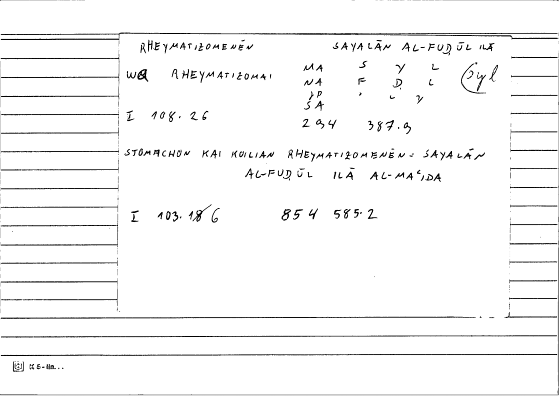 RHEYMATIZOMENĒN SAYALĀN AL-FUḌŪL ILĀ
WQ RHEYMATIZOMAI MA S Y L syl
NA F Ḍ L
ʾ L Y
SA
I 108.26 294 387.9
STOMACHON KAI KOILIAN RHEYMATIZOMENĒN = SAYALĀN
AL-FUḌŪL ILĀ AL-MAʿIDA
I 103.16 854 585.2